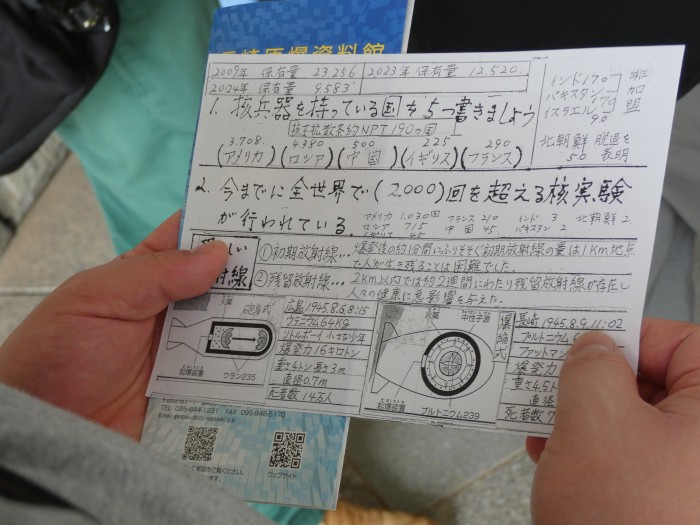 長崎原爆資料館
2009年 保有量 23.256 2023年 保有量 12.520
2024年 保有量 9.583
インド170
パキスタン170
イスラエル90
非加盟
1. 核兵器を持っている国を5つ書きましょう
核不拡散条約NPT 190ヵ国
3.708 4.380 500 225 290
(アメリカ)(ロシア)(中国)(イギリス)(フランス)
北朝鮮 脱退を
50 表明
2. 今までに全世界で(2.000)回を超える核実験
が行われている。
アメリカ 1.030回 フランス 210 インド 3 北朝鮮 2
ロシア 715 中国 45 パキスタン 2
イギリス 45
しい
射線
①初期放射線…爆発後の約1分間にふりそそぐ初期放射線の量は1Km地点
た人が生き残ることは困難でした。
②残留放射線…2km以内では約2週間にわたり残留放射線が存在し
人々の健康に悪影響を与えた。
火薬
砲身式
起爆装置
ウラン235
広島 1945.8.6.8:15
ウラニウム64Kg
リトルボーイ 小さな少年
爆発力 16キロトン
重さ4トン 長さ3m
直径0.7m
死者数 14万人
火薬
中性子源
起爆装置
プルトニウム239
爆縮式
長崎 1945.8.9.11:02
プルトニウム
ファットマン
爆発力
重さ4.5ト
直径
死者数 7
TEL 095-844-1231 FAX 095-846-5170
ウェブサイト